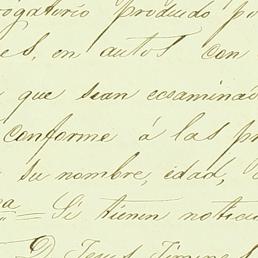 rogatorio producido po
es, en autos con
que sean ecsaminad
conforme á las pr
su nombre, edad,
a = Si tienen noticia
D. Jesus Jimenes